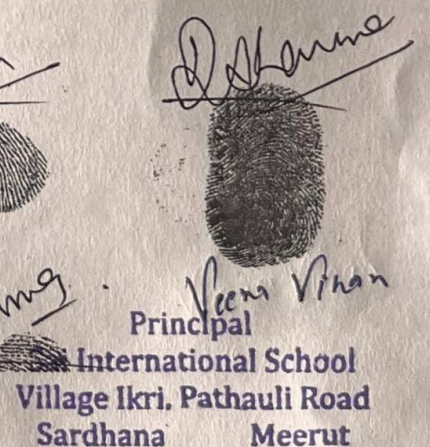 Sharma
Veena
Principal
International School
Village Ikri, Pathauli Road
Sardhana Meerut